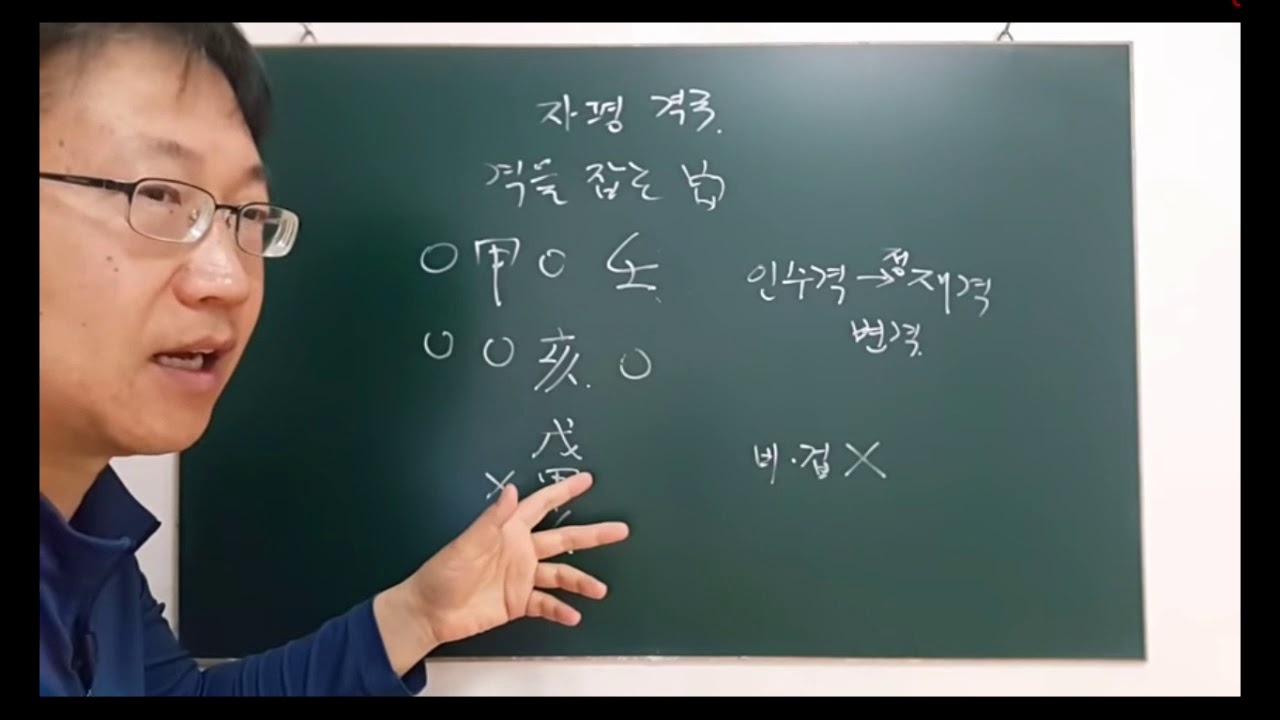 자평 격국.
격을 잡는 법
○ 甲 ○ 壬
○ ○ 亥. ○
戊
× 甲
인수격 → 정재격
변격.
비·겁 ×